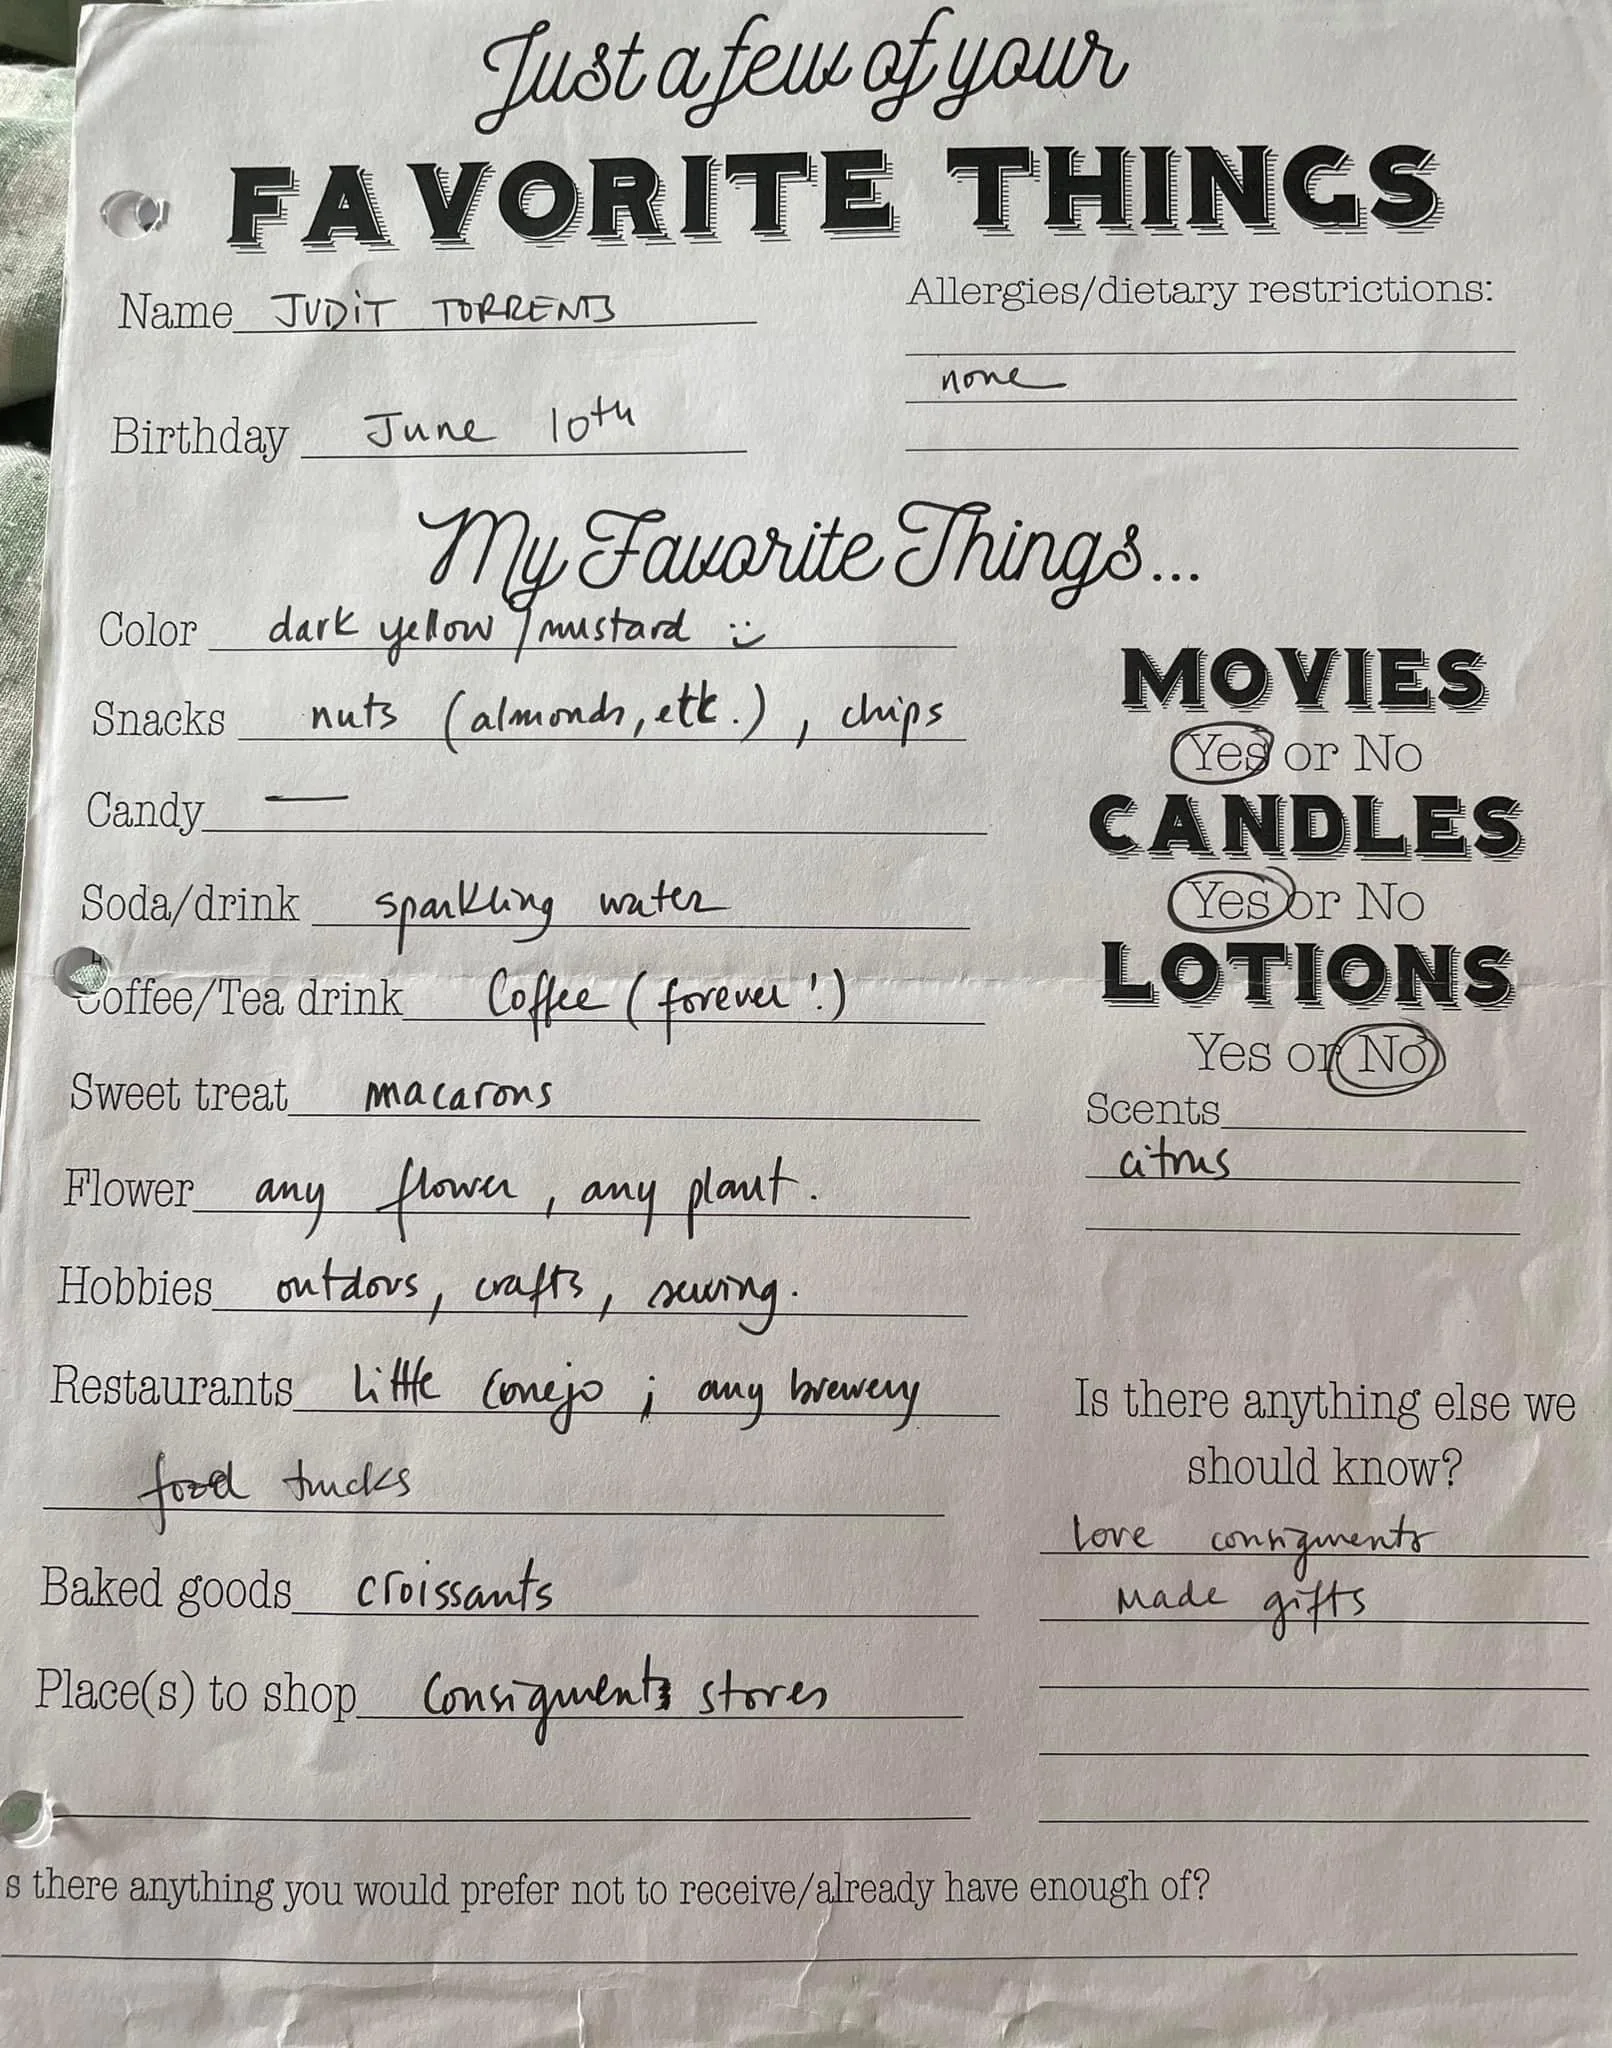 Just a few of your
FAVORITE THINGS
Name JUDIT TORRENTS
Birthday June 10th
Allergies/dietary restrictions:
none
My Favorite Things...
Color dark yellow/mustard :)
Snacks nuts (almonds, etc.), chips
Candy —
Soda/drink sparkling water
Coffee/Tea drink Coffee (forever!)
Sweet treat macarons
Flower any flower, any plant.
Hobbies outdors, crafts, sewing.
Restaurants little Conejo; any brewery
food trucks
Baked goods croissants
Place(s) to shop Consignment stores
MOVIES
Yes or No
CANDLES
Yes or No
LOTIONS
Yes or No
Scents
citrus
Is there anything else we
should know?
love consignments
Made gifts
s there anything you would prefer not to receive/already have enough of?